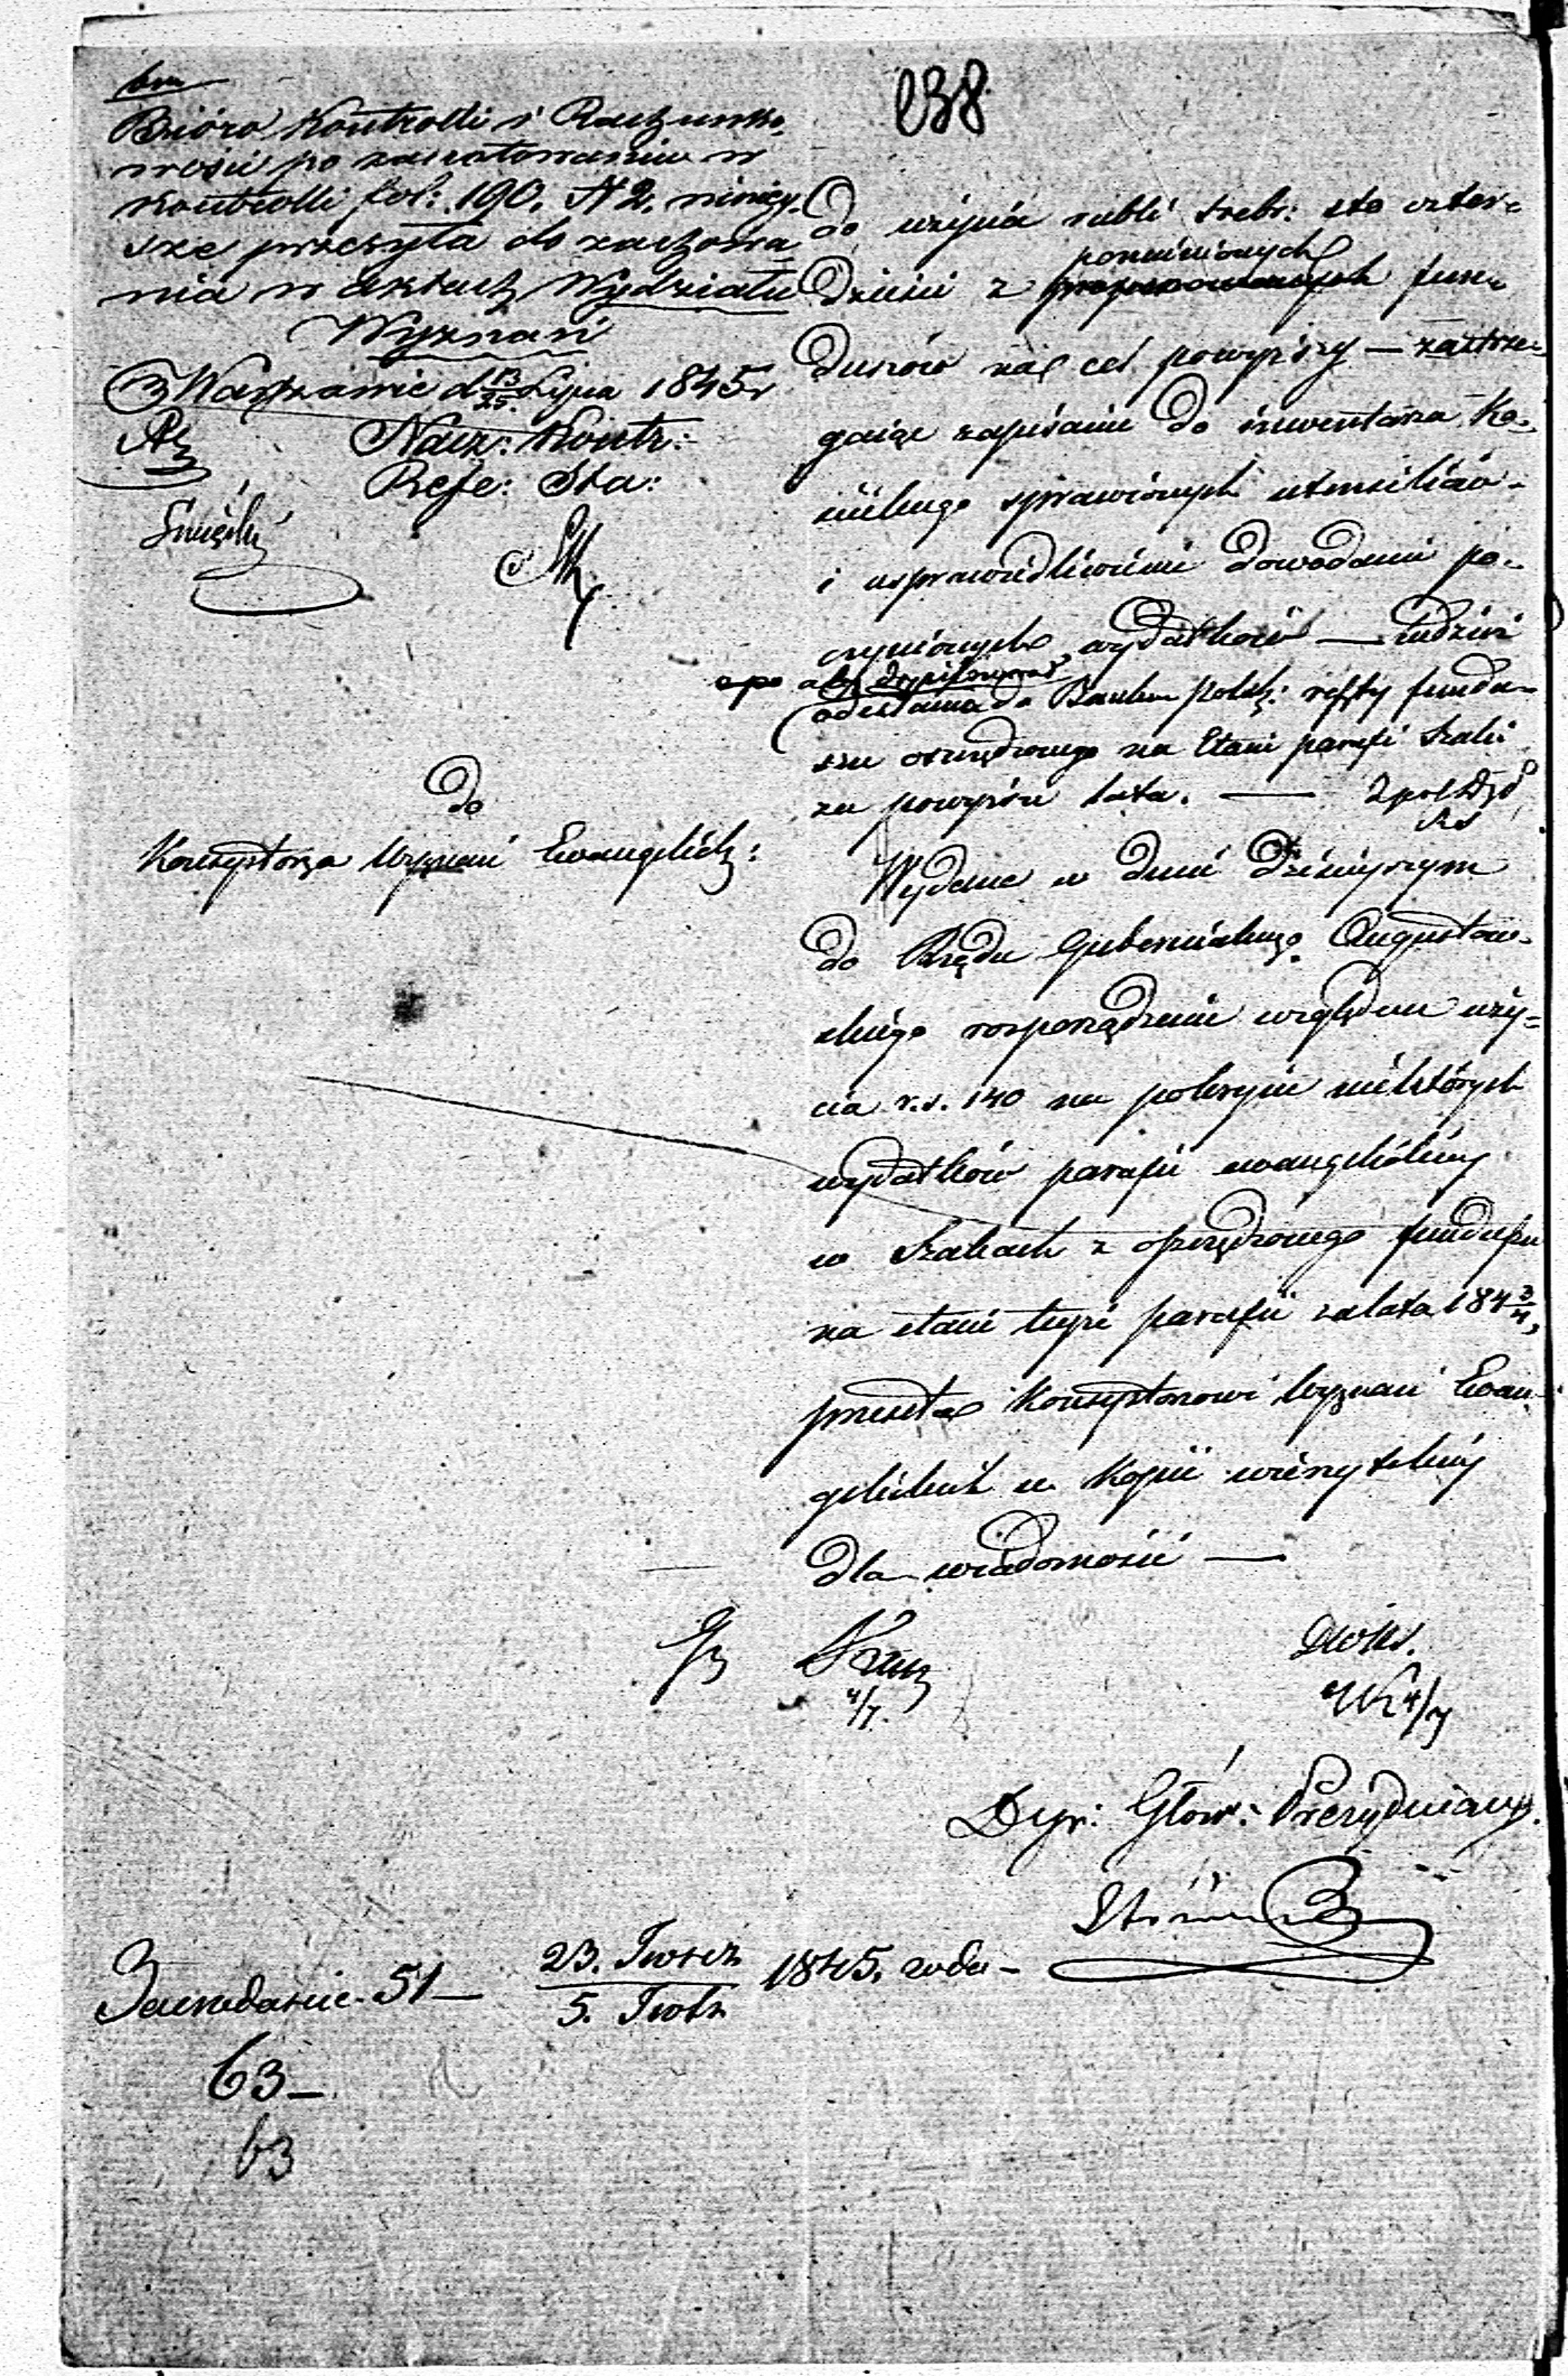 238
Bióro Kontrolli i Rachunko,
wości po zanotowaniu w
Kontrolli fol: 190. N 2. niniey,
sze przesyła do zachowa
nia w aktach Wydziału
Wyznań
w Warszawie d 13/25 Lipca 1845 r
Nacz: Kontr:
Refe: Sta:
do użycia rubli srebr: sto czter-
dzieści z pomienionych fun-
duszów na cel powyższy — zastrze-
gając zapisanie do inwentarza Ko-
ścielnego sprawionych utensiliów
i usprawiedliwienie dowodami po-
czynionych wydatków — tudzież
odesłania do Banku Polsk: reszty fundu-
szu oszczędzonego na Etacie parafii Szaki
za powyższe lata. —
do
Konsystorza Wyznań Ewangelick:
Wydane w dniu dzisiejszym
do Rządu Gubernialnego Augustow-
skiego rozporządzenie względem uży-
cia r.s. 140 na pokrycie niektórych
wydatków parafii ewangelickiej
w Szakach z oszczędzonego funduszu
na etacie tejże parafii za lata 184 3/4,
przesyła Konsystorzowi Wyznań Ewan-
gelickich w kopii wierzytelnej
dla wiadomości —
4/7.
4/7
Dyr: Głów: Prezyduiący.
51 —
23.
5.
1845. roda —
63 —
63